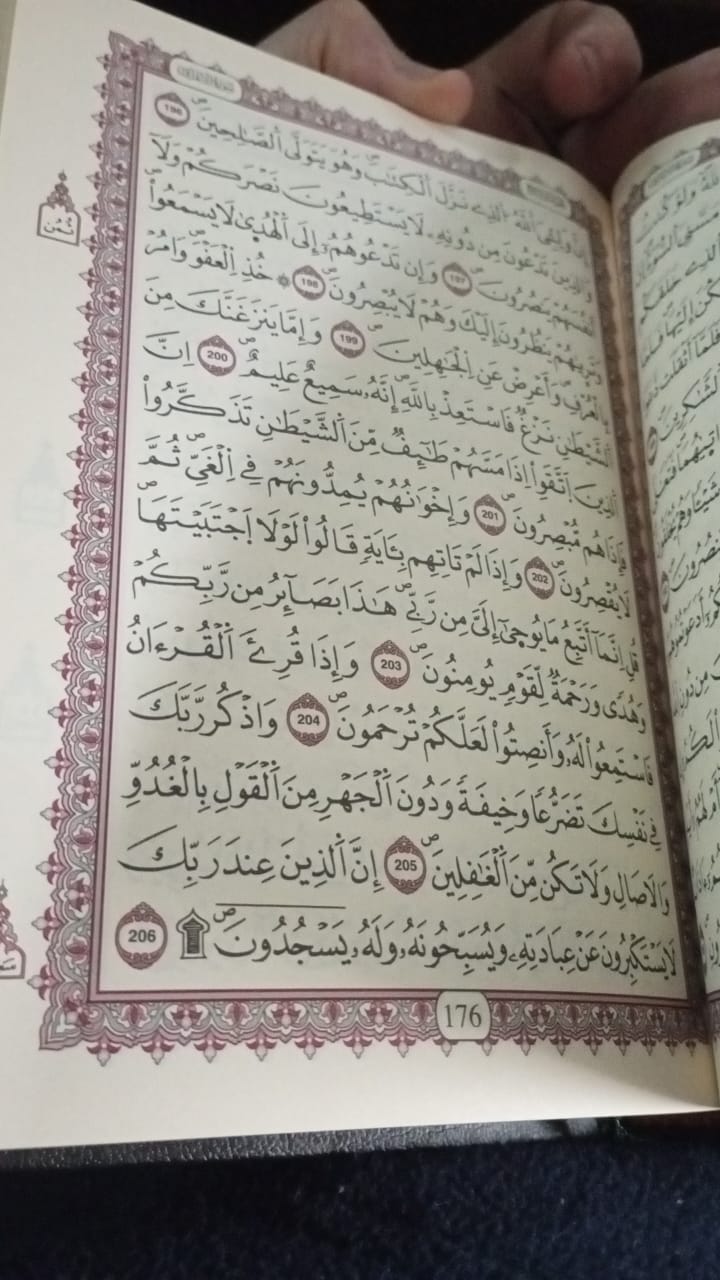 إِنَّ وَلِيِّيَ اَللَّهُ اُلذِے نَزَّلَ اَلْكِتَٰبَ وَهُوَ يَتَوَلَّى اَلصَّٰلِحِينَ 196
وَالذِينَ تَدْعُونَ مِن دُونِهِۦ لَا يَسْتَطِيعُونَ نَصْرَكُمْ وَلَآ
ثُمُن
أَنفُسَهُمْ يَنصُرُونَ 197 وَإِن تَدْعُوهُمُۥٓ إِلَى اَلْهُدَىٰ لَا يَسْمَعُواْ
وَتَرَىٰهُمْ يَنظُرُونَ إِلَيْكَ وَهُمْ لَا يُبْصِرُونَ 198 ۞ خُذِ اِلْعَفْوَ وَامُرْ
بِالْعُرْفِ وَأَعْرِضْ عَنِ اِلْجَٰهِلِينَ 199 وَإِمَّا يَنزَغَنَّكَ مِنَ
اَلشَّيْطَٰنِ نَزْغٌ فَاسْتَعِذْ بِاللَّهِ إِنَّهُۥ سَمِيعٌ عَلِيمٌ 200 اِنَّ
اَلذِينَ اَتَّقَوِاْ اِذَا مَسَّهُمْ طَٰٓئِفٌ مِّنَ اَلشَّيْطَٰنِ تَذَكَّرُواْ
فَإِذَا هُم مُّبْصِرُونَ 201 وَإِخْوَٰنُهُمْ يُمِدُّونَهُمْ فِے اِلْغَيِّ ثُمَّ
لَا يُقْصِرُونَ 202 وَإِذَا لَمْ تَاتِهِم بِـَٔايَةٍ قَالُواْ لَوْلَا اَجْتَبَيْتَهَا
قُلِ اِنَّمَآ أَتَّبِعُ مَا يُوحَىٰٓ إِلَيَّ مِن رَّبِّے هَٰذَا بَصَآئِرُ مِن رَّبِّكُمْ
وَهُدًى وَرَحْمَةٌ لِّقَوْمٍ يُومِنُونَ 203 وَإِذَا قُرِئَ اَلْقُرْءَانُ
فَاسْتَمِعُواْ لَهُۥ وَأَنصِتُواْ لَعَلَّكُمْ تُرْحَمُونَ 204 وَاذْكُر رَّبَّكَ
فِے نَفْسِكَ تَضَرُّعًا وَخِيفَةً وَدُونَ اَلْجَهْرِ مِنَ اَلْقَوْلِ بِالْغُدُوِّ
وَالَاصَالِ وَلَا تَكُن مِّنَ اَلْغَٰفِلِينَ 205 إِنَّ اَلذِينَ عِندَ رَبِّكَ
لَا يَسْتَكْبِرُونَ عَنْ عِبَادَتِهِۦ وَيُسَبِّحُونَهُۥ وَلَهُۥ يَسْجُدُونَ ۩ 206
176